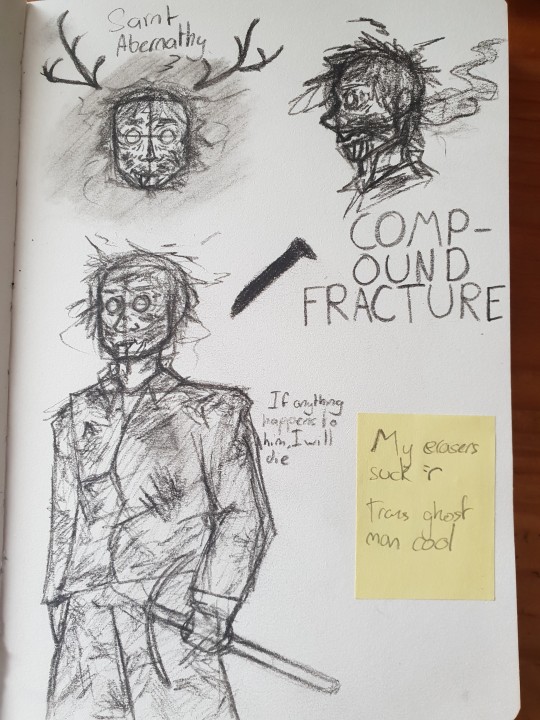 Saint
Abernathy
?
COMP-
OUND
FRACTURE
If anything
happens to
him, I will
die
My erasers
suck :r
trans ghost
man cool